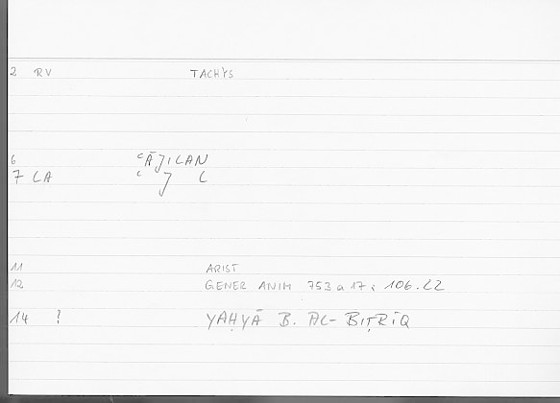 2 RV TACHYS
6 ʿĀJILAN
7 LA ʿ J L
11 ARIST
12 GENER ANIM 753 a 17 : 106.22
14 ? YAḤYĀ B. AL-BIṬRĪQ